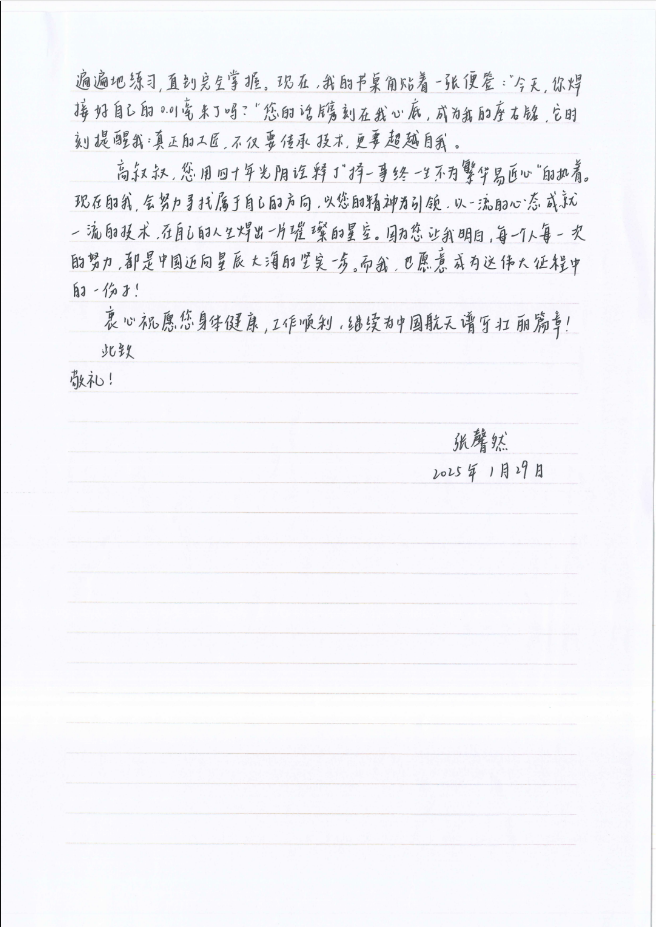 遍遍地练习,直到完全掌握。现在,我的书桌角贴着一张便签:“今天,你焊
接好自己的0.01毫米了吗?”您的话镌刻在我心底,成为我的座右铭,它时
刻提醒我:真正的工匠,不仅要传承技术,更要超越自我。
高叔叔,您用四十年光阴诠释了“择一事终一生不为繁华易匠心”的执着。
现在的我,会努力寻找属于自己的方向,以您的精神为引领,以一流的心态成就
一流的技术,在自己的人生焊出一片璀璨的星空。因为您让我明白,每一个人每一次
的努力,都是中国迈向星辰大海的坚实一步。而我,也愿意成为这伟大征程中
的一份子!
衷心祝愿您身体健康,工作顺利,继续为中国航天谱写壮丽篇章!
此致
敬礼!
张馨然
2025年1月29日